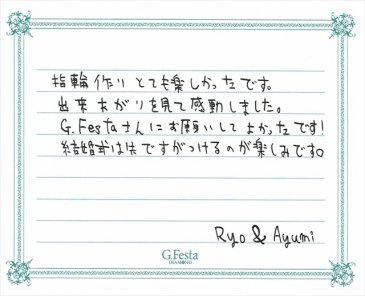 指輪作りとても楽しかったです。
出来上がりを見て感動しました。
G.Festaさんにお願いしてよかったです!
結婚式は先ですがつけるのが楽しみです。
Ryo & Ayumi
G.Festa
DIAMOND